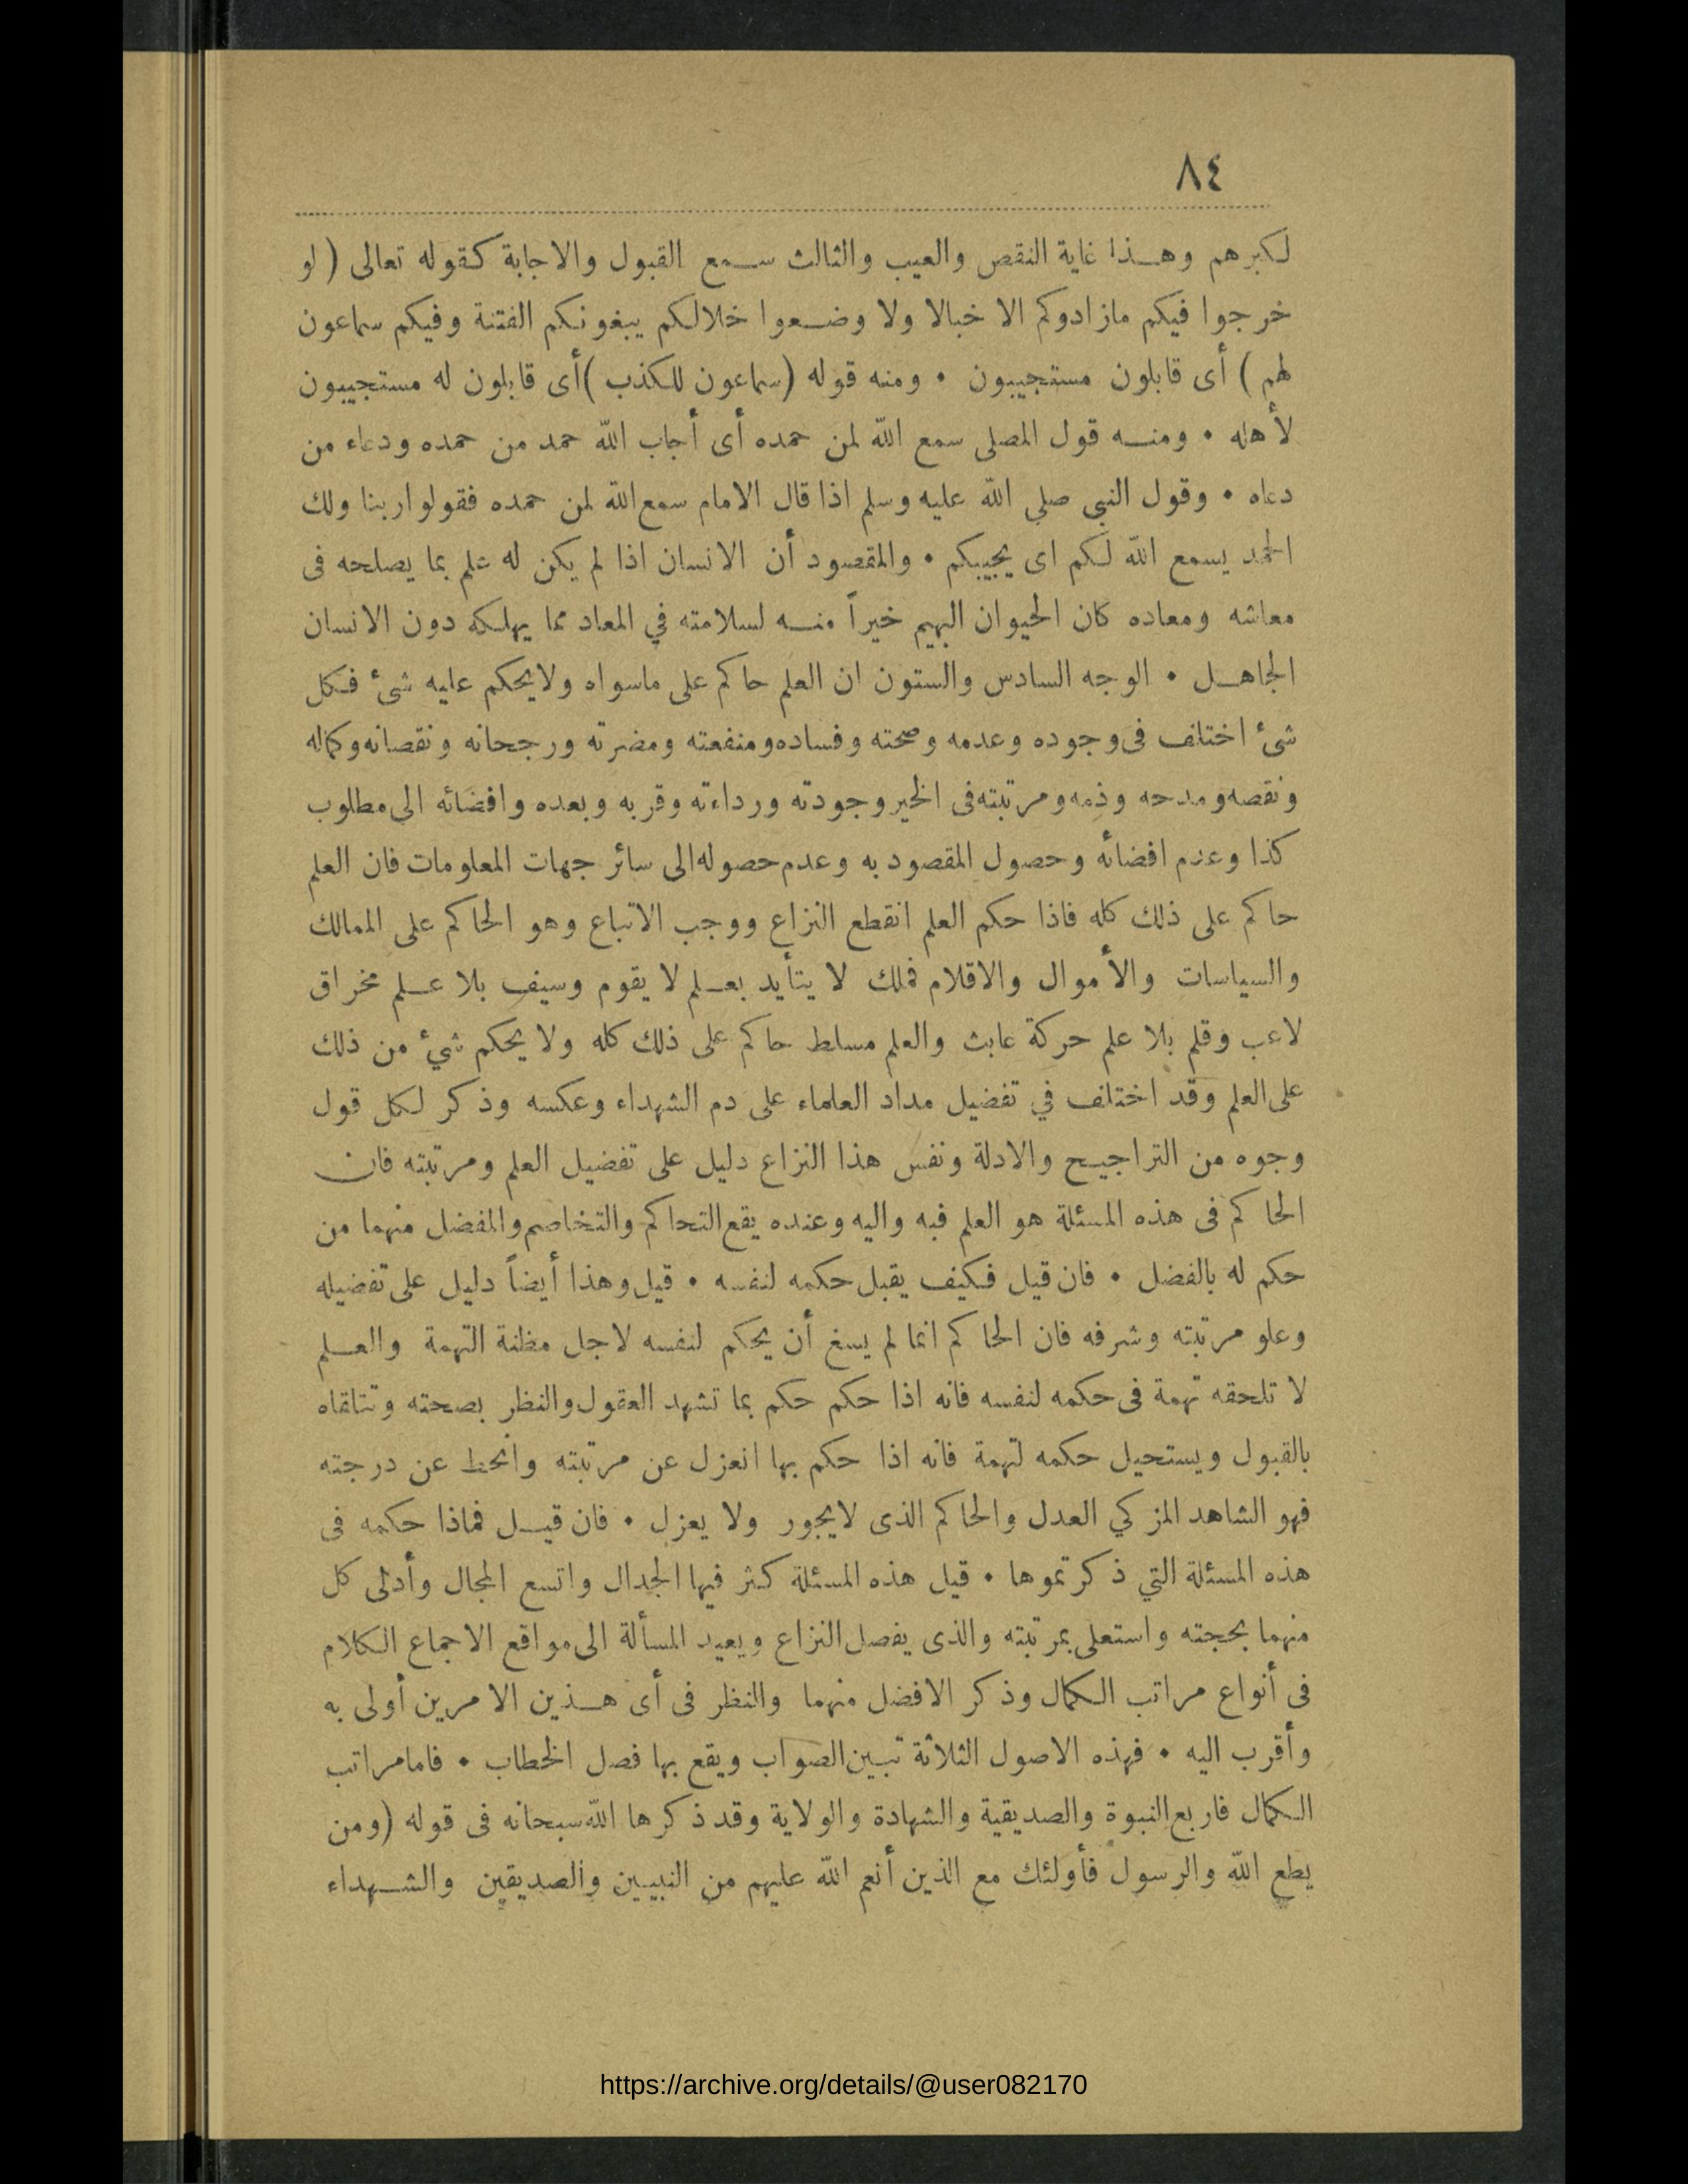 ٨٤
لكبرهم وهذا غاية النقص والعيب والثالث سمع القبول والاجابة كقوله تعالى ( لو
خرجوا فيكم مازادوكم الا خبالا ولا وضعوا خلالكم يبغونكم الفتنة وفيكم سماعون
لهم ) أى قابلون مستجيبون • ومنه قوله (سماعون للكذب )أى قابلون له مستجيبون
لأهله • ومنه قول المصلى سمع الله لمن حمده أى أجاب الله حمد من حمده ودعاء من
دعاه • وقول النبي صلى الله عليه وسلم اذا قال الامام سمع الله لمن حمده فقولوا ربنا ولك
الحمد يسمع الله لكم اى يجيبكم • والمقصود أن الانسان اذا لم يكن له علم بما يصلحه فى
معاشه ومعاده كان الحيوان البهيم خيراً منه لسلامته في المعاد مما يهلكه دون الانسان
الجاهل • الوجه السادس والستون ان العلم حاكم على ماسواه ولايحكم عليه شىء فكل
شىء اختلف فى وجوده وعدمه وصحته وفساده ومنفعته ومضرته ورجحانه ونقصانه وكماله
ونقصه ومدحه وذمه ومرتبته فى الخير وجودته ورداءته وقربه وبعده وافضائه الى مطلوب
كذا وعدم افضائه وحصول المقصود به وعدم حصوله الى سائر جهات المعلومات فان العلم
حاكم على ذلك كله فاذا حكم العلم انقطع النزاع ووجب الاتباع وهو الحاكم على الممالك
والسياسات والأموال والاقلام فملك لا يتأيد بعلم لا يقوم وسيف بلا علم مخراق
لاعب وقلم بلا علم حركة عابث والعلم مسلط حاكم على ذلك كله ولا يحكم شيء من ذلك
على العلم وقد اختلف في تفضيل مداد العلماء على دم الشهداء وعكسه وذكر لكل قول
وجوه من التراجيح والادلة ونفس هذا النزاع دليل على تفضيل العلم ومرتبته فان
الحاكم فى هذه المسئلة هو العلم فبه واليه وعنده يقع التحاكم والتخاصم والمفضل منهما من
حكم له بالفضل • فان قيل فكيف يقبل حكمه لنفسه • قيل وهذا أيضاً دليل على تفضيله
وعلو مرتبته وشرفه فان الحاكم انما لم يسغ أن يحكم لنفسه لاجل مظنة التهمة والعلم
لا تلحقه تهمة فى حكمه لنفسه فانه اذا حكم حكم بما تشهد العقول والنظر بصحته وتتلقاه
بالقبول ويستحيل حكمه لتهمة فانه اذا حكم بها انعزل عن مرتبته وانحط عن درجته
فهو الشاهد المزكي العدل والحاكم الذى لايجور ولا يعزل • فان قيل فماذا حكمه فى
هذه المسئلة التي ذكرتموها • قيل هذه المسئلة كثر فيها الجدال واتسع المجال وأدلى كل
منهما بحجته واستعلى بمرتبته والذى يفصل النزاع ويعيد المسألة الى مواقع الاجماع الكلام
فى أنواع مراتب الكمال وذكر الافضل منهما والنظر فى أى هذين الامرين أولى به
وأقرب اليه • فهذه الاصول الثلاثة تبين الصواب ويقع بها فصل الخطاب • فامامراتب
الكمال فاربع النبوة والصديقية والشهادة والولاية وقد ذكرها الله سبحانه فى قوله (ومن
يطع الله والرسول فأولئك مع الذين أنعم الله عليهم من النبيين والصديقين والشهداء
https://archive.org/details/@user082170